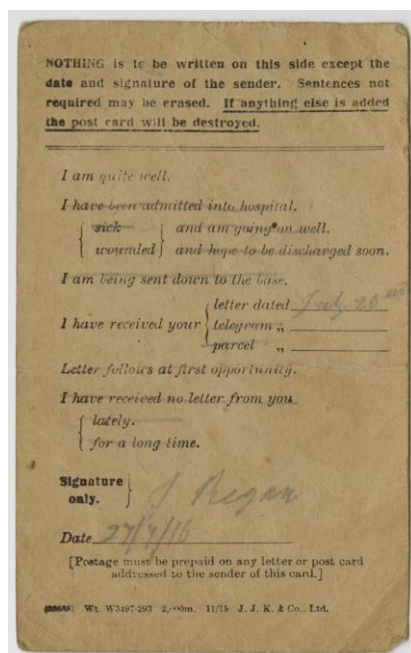 NOTHING is to be written on this side except the
date and signature of the sender. Sentences not
required may be erased. If anything else is added
the post card will be destroyed.
I am quite well.
I have been admitted into hospital.
sick } and am going on well.
wounded } and hope to be discharged soon.
I am being sent down to the base.
letter dated July 20
I have received your { telegram „
parcel „
Letter follows at first opportunity.
I have received no letter from you
lately.
for a long time.
Signature
only. } J Regan
Date 27/7/16
[Postage must be prepaid on any letter or post card
addressed to the sender of this card.]
Wt. W3497-293 2,000m. 11/15 J. J. K. & Co., Ltd.